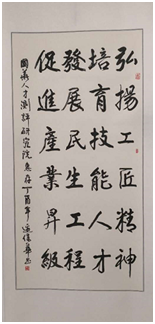 弘揚工匠精神
培育技能人才
發展民生工程
促進產業昇級
人才測評研究院惠存丁酉年